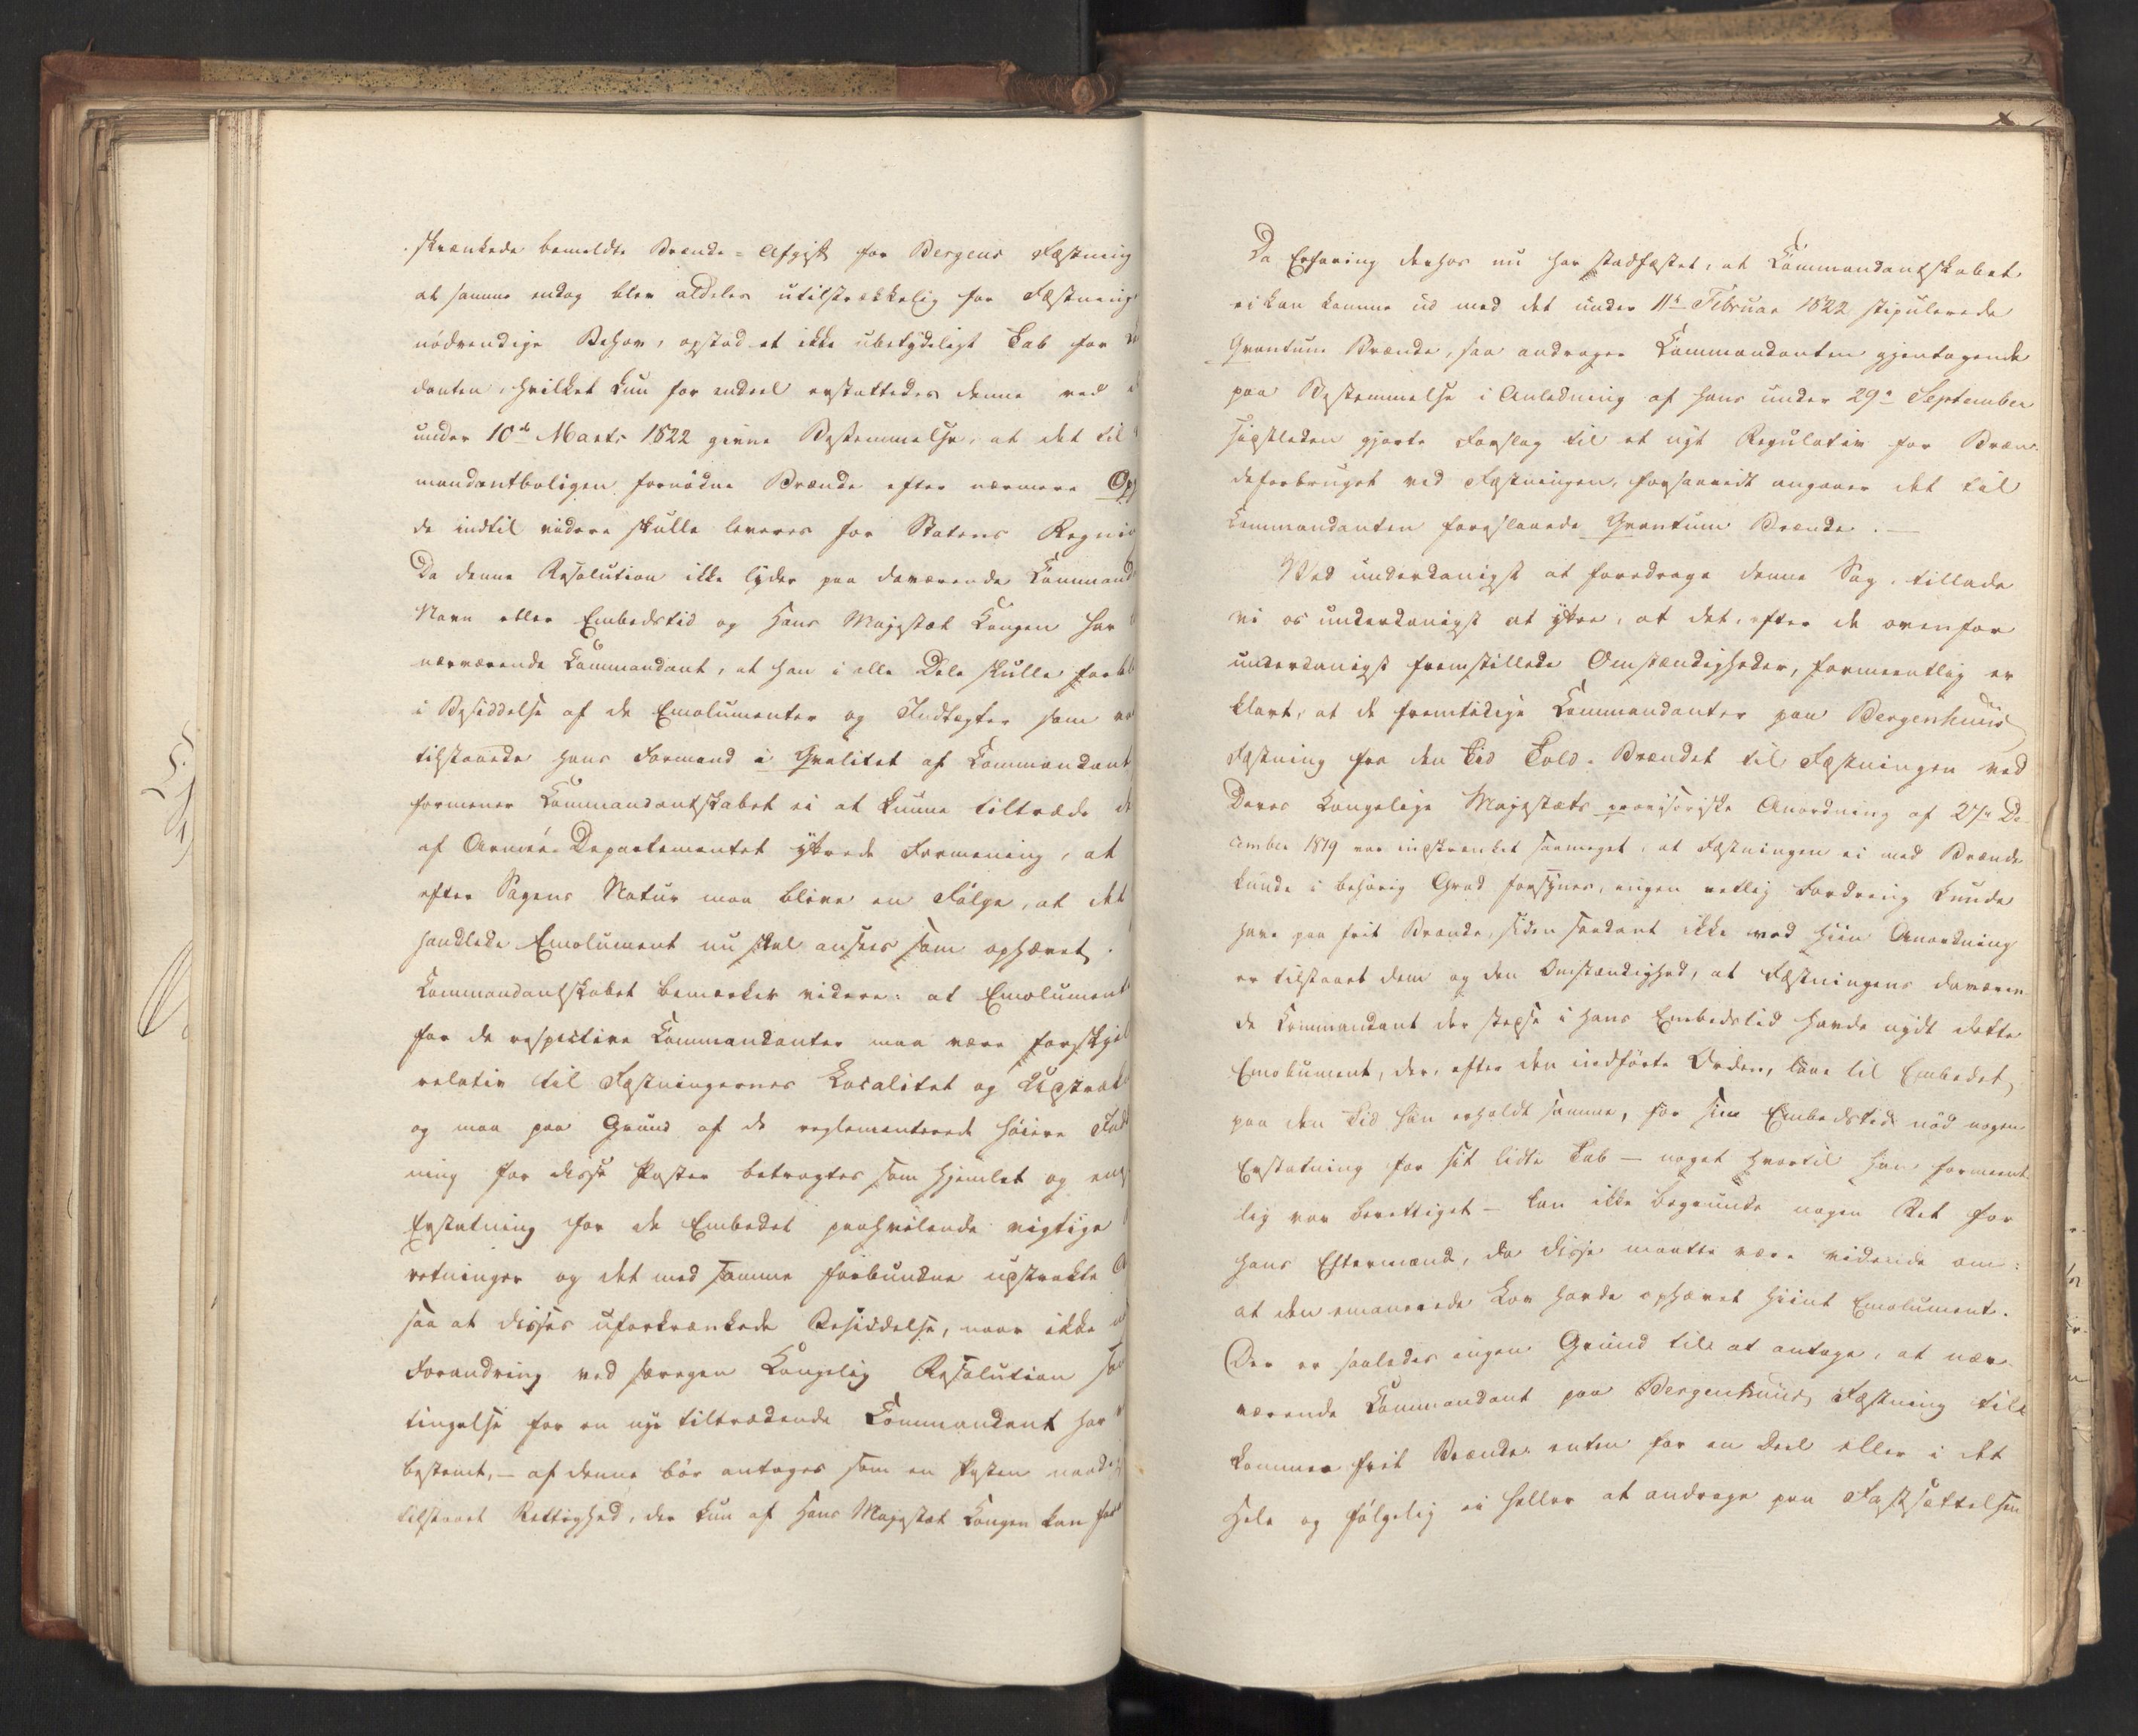 skrænkede bemeldte Brænde-Afgift for Bergens Fæstning
at samme endog blev aldeles utilstrækkelig for Fæstning
nödvendige Behov, opstod et ikke ubetydeligt Tab for
danten, hvilket kun for endeel erstattedes denne ved
under 10de Marts 1822 givne Bestemmelse, at det til
mandantboligen fornödne Brænde efter nærmere Op
de indtil videre skulle leveres for Statens Regni
Da denne Resolution ikke lyder paa daværende Command
Navn eller Embedstid og Hans Majestæt Kongen har
nærværende Commandant, at han i alle Dele skulle forbl
i Besiddelse af de Emolumenter og Indtægter som
tilstaaede hans Formand i Qvalitet af Commandant
formener Commandantskabet ei at kunne tiltræde
af Armée-Departementet yttrede Formening, at
efter Sagens Natur maa blive en Fölge, at det
handlede Emolument nu skal ansees som ophævet.
Commandantskabet bemærker videre: at Emolument
for de respective Commandanter maa være forskjel
relativ til Fæstningernes Localitet og Udstrækk
og maa paa Grund af de reglementerede höiere
ning for disse Poster betragtes som hjemlet og
Erstatning for de Embedet paahvilende vigtige
retninger og det med samme forbundne udstrakte
saa at disses uforkrænkede Besiddelse, naar ikke
Forandring ved særegen Kongelig Resolution
tingelse for en nye tiltrædende Commandant har
bestemt, – af denne bör antages som en Posten
tilstaaet Rettighed, der kun af Hans Majestæt Kongen kan
Da Erfaring derhos nu har stadfæstet, at Commandantskabet
ei kan komme ud med det under 11te Februar 1822 stipulerede
Qvantum Brænde, saa andrager Commandanten gjentagende
paa Bestemmelse i Anledning af hans under 29de September
sidstleden gjorte Forslag til et nyt Regulativ for Bræn-
deforbruget ved Fæstningen, forsaavidt angaaer det til
Commandanten foreslaaede Qvantum Brænde. –
Ved underdanigst at foredrage denne Sag, tillade
vi os underdanigst at yttre, at det, efter de ovenfor
underdanigst fremstillede Omstændigheder, formeentlig er
klart, at de fremtidige Commandanter paa Bergenhuus
Fæstning fra den Tid Told-Brændet til Fæstningen ved
Deres Kongelige Majestæts provisoriske Anordning af 27de De-
cember 1819 var indskrænket saameget, at Fæstningen ei med Brænde
kunde i behörig Grad forsynes, ingen retlig Fordring kunde
have paa frit Brænde, siden saadant ikke ved hiin Anordning
er tilstaaet dem og den Omstændighed, at Fæstningens daværen-
de Commandant der stedse i hans Embedstid havde nydt dette
Emolument, der, efter den indförte Orden, laae til Embedet,
paa den Tid han erholdt samme, for sin Embedstid nöd nogen
Erstatning for sit lidte Tab – noget hvortil han formeent-
lig var berettiget – kan ikke begrunde nogen Ret for
hans Eftermænd, da disse maatte være vidende om:
at den emanerede Lov havde ophævet hiint Emolument.
Der er saaledes ingen Grund til at antage, at nær-
værende Commandant paa Bergenhuus Fæstning til-
kommer frit Brænde enten for en Deel eller i det
Hele og fölgelig ei heller at andrage paa Fastsættelsen